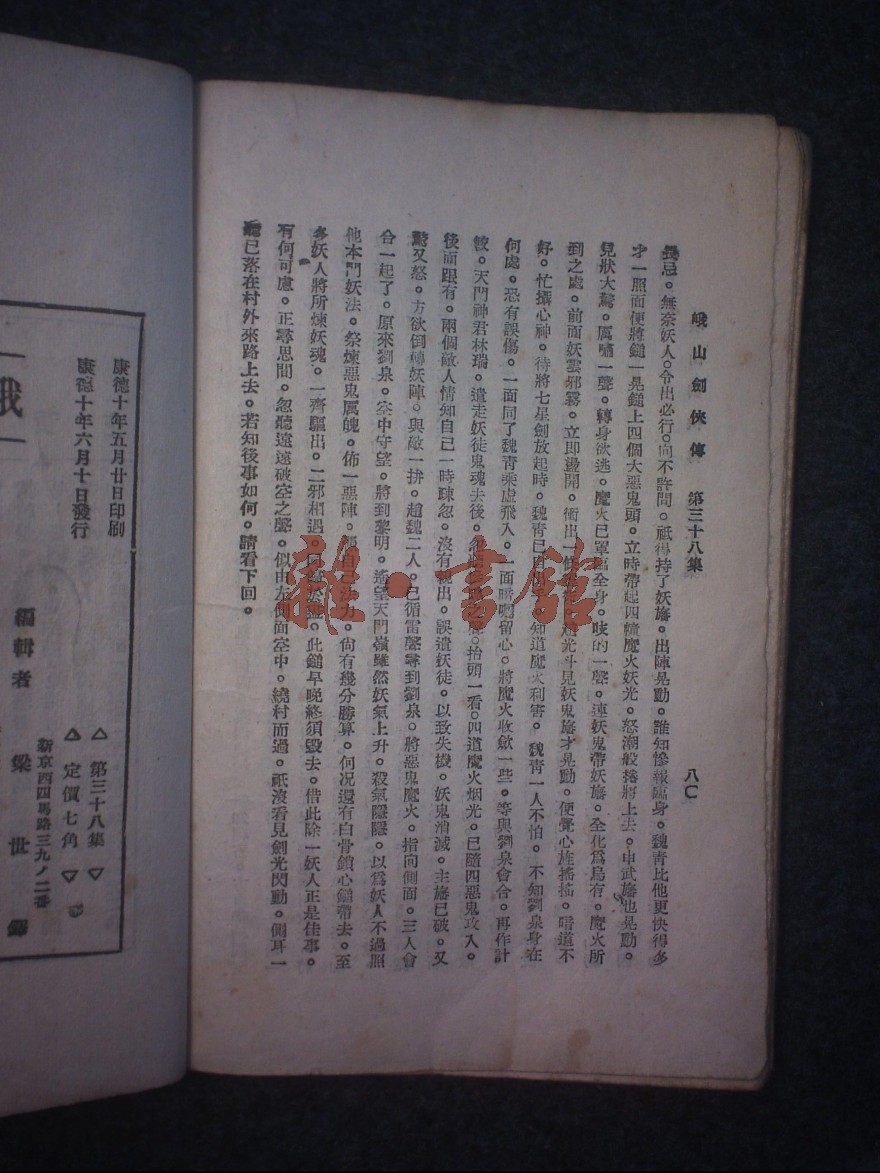 峨山劍俠傳　第三十八集　八〇
長忌。無奈妖人。令出必行。向不許問。祇得持了妖旛。出陣晃動。誰知慘報臨身。魏青比他更快得多
才一照面便將鎚一晃鎚上四個大惡鬼頭。立時帶起四幢魔火妖光。怒潮般捲將上去。申武旛也晃動。
見狀大驚。厲嘯一聲。轉身欲逃。魔火已罩臨全身。吱的一聲。連妖鬼帶妖旛。全化爲烏有。魔火所
到之處。前面妖雲邪霧。立即盪開。衝出一條
光斗見妖鬼旛才晃動。便覺心旌搖搖。暗道不
好。忙攝心神。待將七星劍放起時。魏青已
知道魔火利害。魏青一人不怕。不知劉泉身在
何處。恐有誤傷。一面同了魏青乘虛飛入。一面暗囑留心。將魔火收歛一些。等與劉泉會合。再作計
較。天門神君林瑞。遣走妖徒鬼魂去後。忽
抬頭一看。四道魔火烟光。已隨四惡鬼攻入。
後面跟有。兩個敵人情知自己一時疎忽。沒有
出。誤遣妖徒。以致失機。妖鬼消滅。主旛已破。又
驚又怒。方欲倒轉妖陣。與敵一拚。趙魏二人。已循雷聲尋到劉泉。將惡鬼魔火。指向側面。三人會
合一起了。原來劉泉。空中守望。將到黎明。遙望天門嶺雖然妖氣上升。殺氣隱隱。以爲妖人不過照
他本門妖法。祭煉惡鬼厲魄。佈一惡陣。
自己法力。尙有幾分勝算。何况還有白骨鎖心鎚帶去。至
多妖人將所煉妖魂。一齊驅出。二邪相遇。同
於盡。此鎚早晚終須毀去。借此除一妖人正是佳事。
有何可慮。正尋思間。忽聽遠遠破空之聲。似由左側面空中。繞村而過。祇沒看見劍光閃動。側耳一
聽已落在村外來路上去。若知後事如何。請看下回。
康德十年五月廿日印刷
康德十年六月十日發行
峨
編輯者　梁世鐸
△第三十八集▽
△定價七角▽
新京西四馬路三九ノ二番
雜·書館